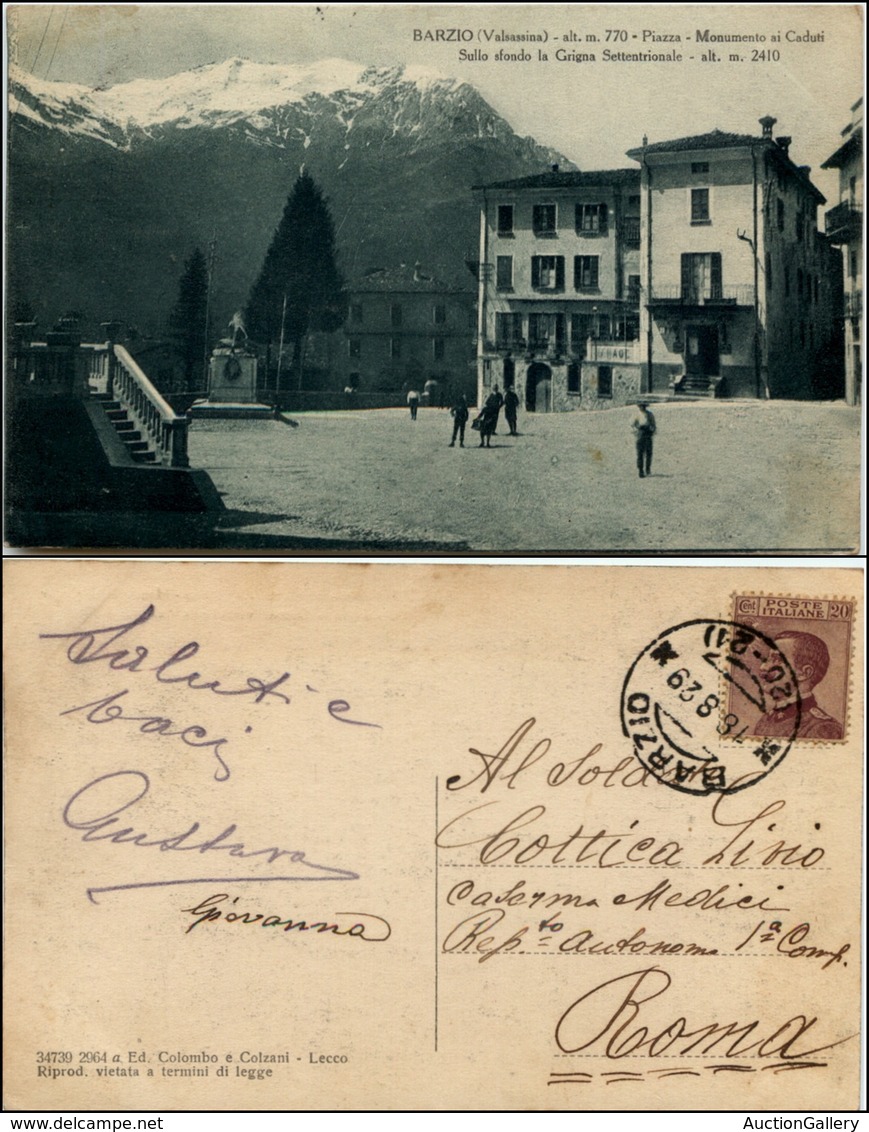 BARZIO (Valsassina) - alt. m. 770 - Piazza - Monumento ai Caduti
Sullo sfondo la Grigna Settentrionale - alt. m. 2410
Cent. POSTE ITALIANE 20
BARZIO
18 8 29
(20-21)
Saluti e
baci
Gustavo
Giovanna
Al Soldato
Cottica Livio
Caserma Medici
Rep.to Autonomo 1ª Comp.
Roma
34739 2964 a Ed. Colombo e Colzani - Lecco
Riprod. vietata a termini di legge
AuctionGallery